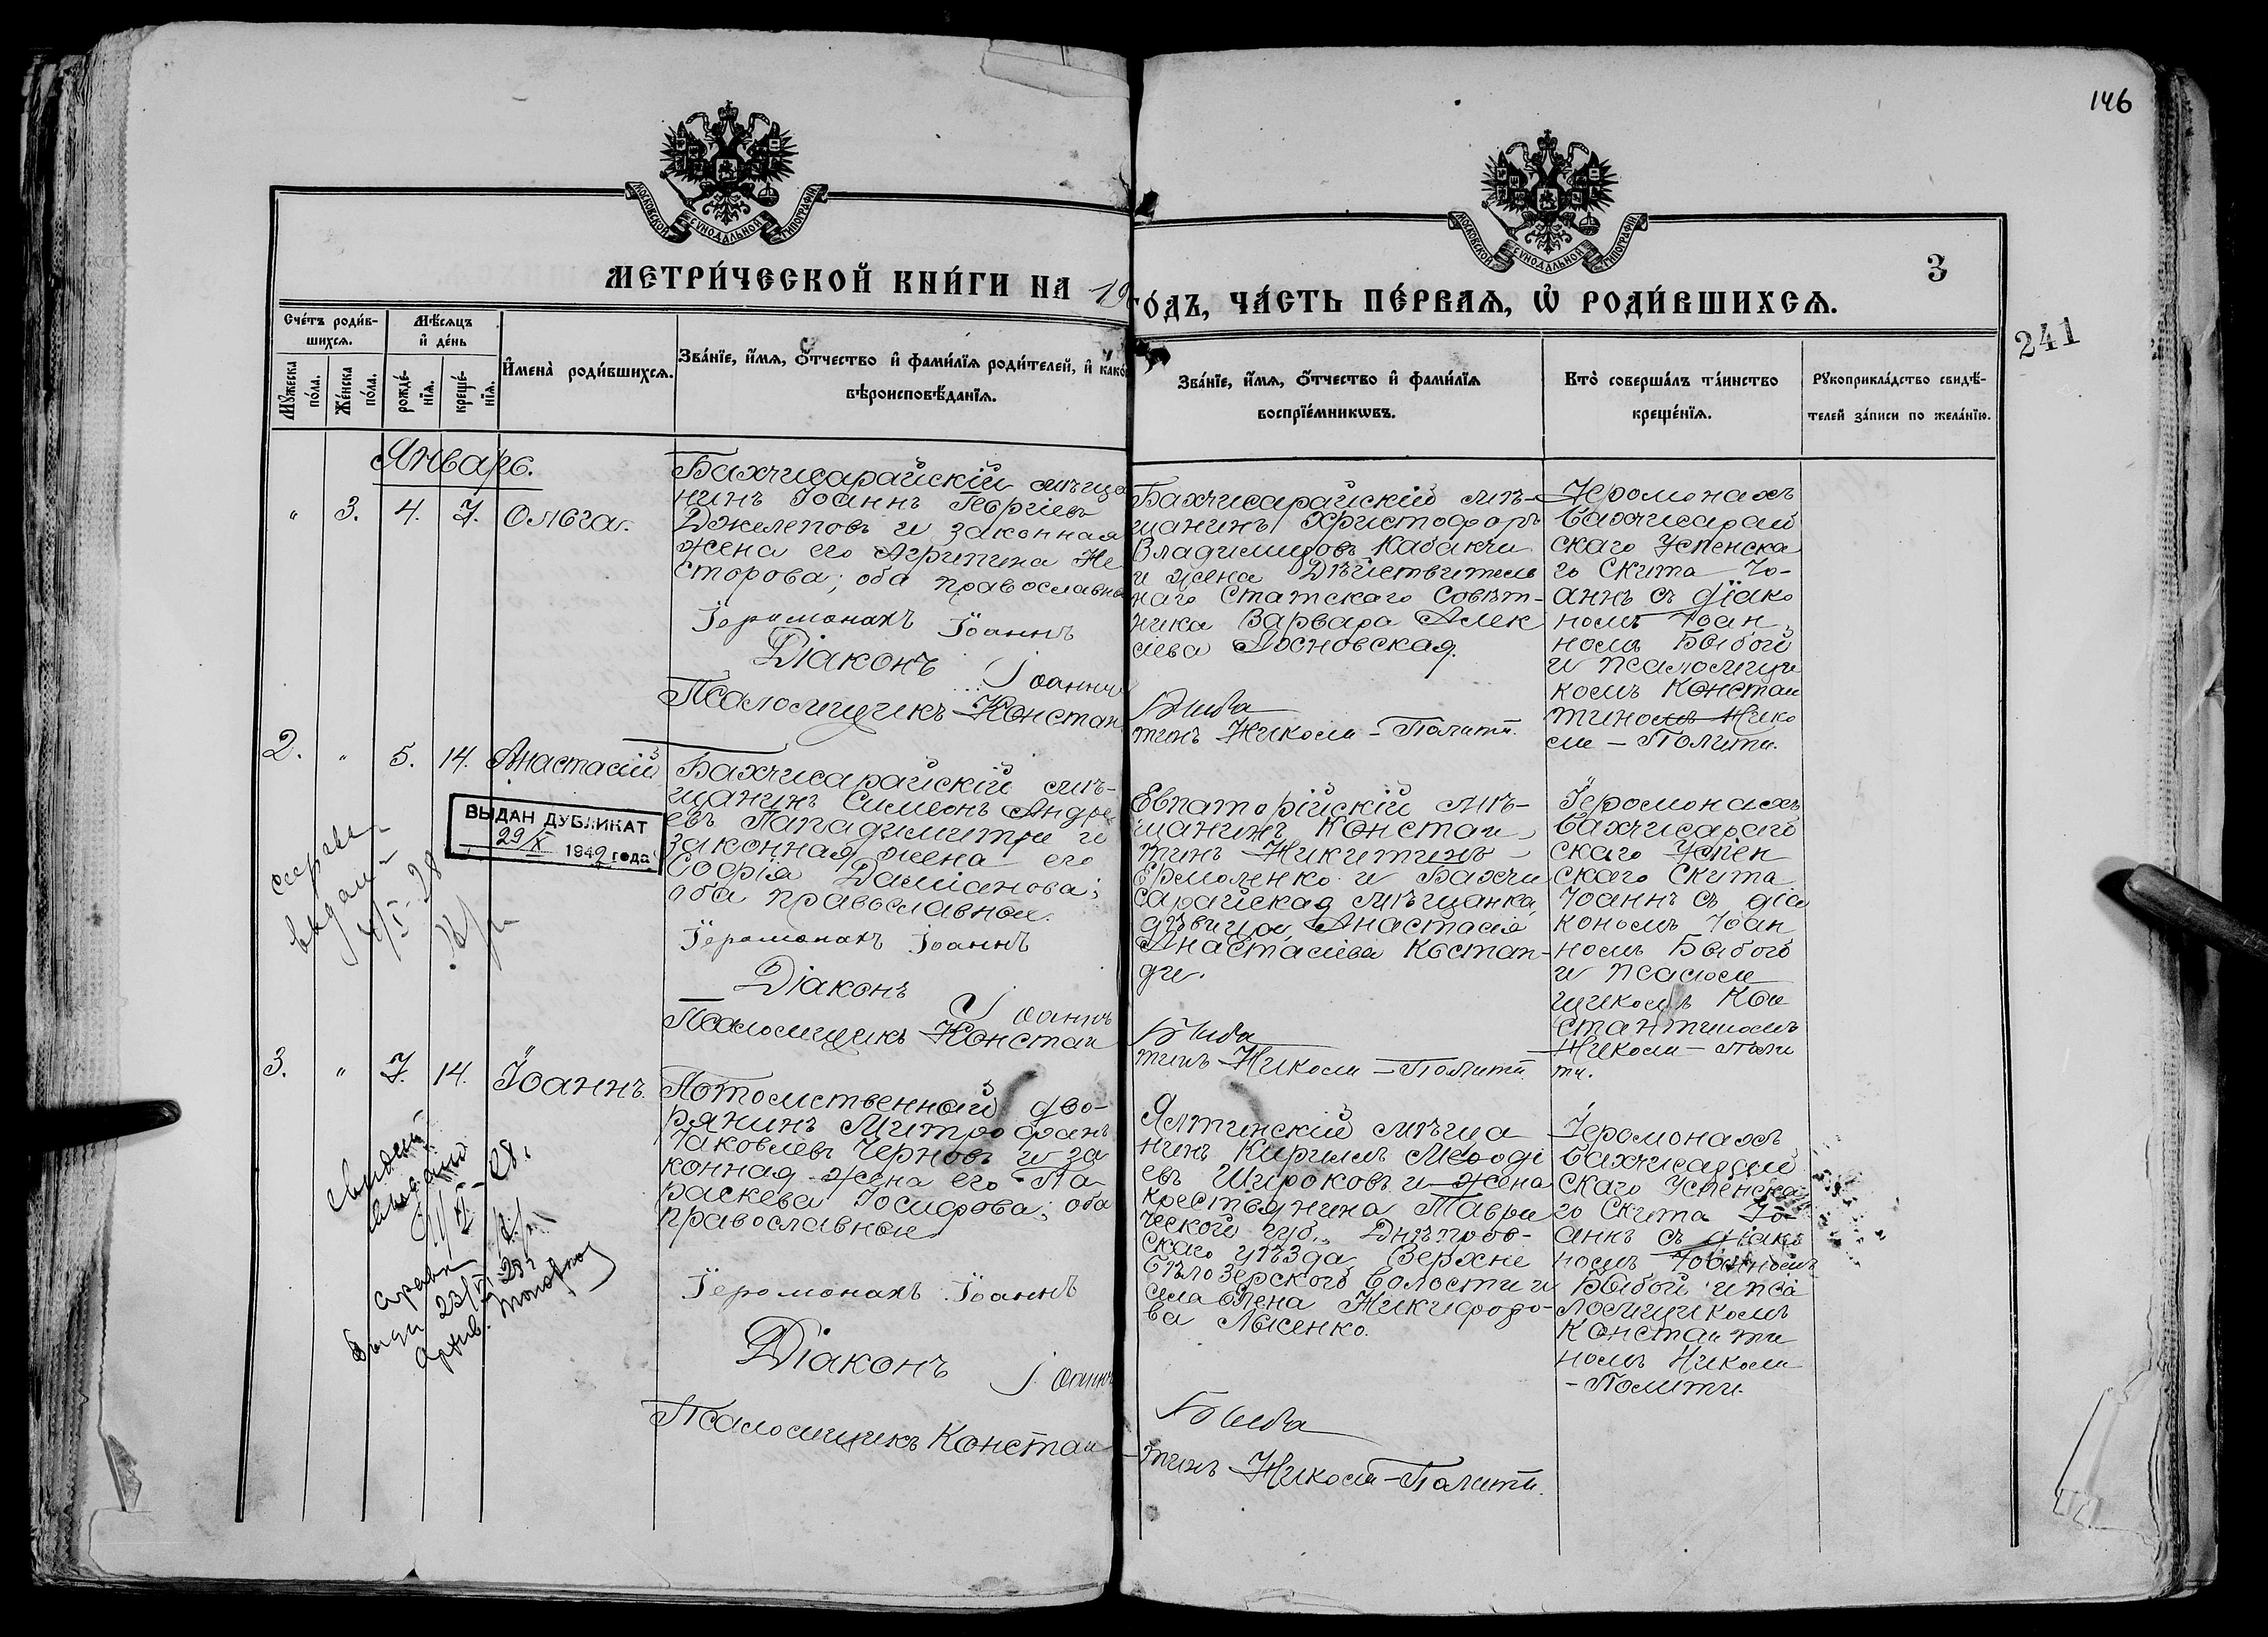 146
МОСКОВСКОЙ СѴНОДАЛЬНОЙ ТИПОГРАФІИ
МОСКОВСКОЙ СѴНОДАЛЬНОЙ ТИПОГРАФІИ
МЕТРИ́ЧЕСКОЙ КНИ́ГИ НА 19
ГО́ДЪ, ЧА́СТЬ ПЕ́РВАѦ, Ѡ҆ РОДИ́ВШИХСѦ.
3
241
Сче́тъ роди́в-
шихсѧ.
Мѣ́сѧцъ
и҆ де́нь
Мꙋжеска
по́ла.
Же́нска
по́ла.
рожде́-
нїѧ.
креще́-
нїѧ.
И҆мена̀ роди́вшихсѧ.
Зва́нїе, и҆́мѧ, ѻ҆́тчество и҆ фами́лїѧ роди́телей, и҆ како́
вѣроисповѣ́данїѧ.
Зва́нїе, и҆́мѧ, ѻ҆́тчество и҆ фами́лїѧ
воспрїе́мникѡвъ.
Кто̀ соверша́лъ та́инство
креще́нїѧ.
Рꙋкоприкла́дство свидѣ́-
телей за́писи по жела́нїю.
Январь.
" 3. 4. 7. Ольга.
Бахчисарайскій мѣща
нинъ Іоаннъ Георгіевъ
Джелеповъ и законная
жена его Агрипина Не
сторова; оба православны
Іеромонахъ Іоаннъ
Діаконъ Іоаннъ
Псаломщикъ Констан
Бахчисарайскій мѣ-
щанинъ Христофоръ
Владиміровъ Кабакчи
и жена Дѣйствитель
наго Статскаго Совѣт-
ника Варвара Алек
сіева Лосновская.
Быба
тинъ Николи-Полити.
Іеромонахъ
Бахчисарай
скаго Успенска
го Скита Іо-
аннъ съ діако
номъ Іоан
номъ Быбой
и псаломщи
комъ Констан
тиномъ Нико
ли-Полити.
2. " 5. 14. Анастасій
Бахчисарайскій мѣ-
щанинъ Симеонъ Андре
евъ Пападимитри и
законная жена его
Софія Даміанова;
оба православные.
Іеромонахъ Іоаннъ
Діаконъ Іоаннъ
Псаломщикъ Констан
ВЫДАН ДУБЛИКАТ
29/X 1949 года
выдан
4/I-28
Евпаторійскій мѣ-
щанинъ Констан
тинъ Никитинъ
Ермоленко и Бахчи
сарайская мѣщанка
дѣвица Анастасія
Анастасіева Костан-
ди.
Быба
тинъ Николи-Полити.
Іеромонахъ
Бахчисарай
скаго Успен
скаго Скита
Іоаннъ съ діа
кономъ Іоан
номъ Быбой
и псалом
щикомъ Кон
стантиномъ
Николи-Поли
ти.
3. " 7. 14. Іоаннъ.
Потомственный дво-
рянинъ Митрофанъ
Іаковлевъ Черновъ и за
конная жена его Па-
раскева Іосифова; оба
православные
Іеромонахъ Іоаннъ
Діаконъ Іоаннъ
Псаломщикъ Констан
Ялтинскій мѣща
нинъ Кириллъ Меѳоді
евъ Широковъ и жена
крестьянина Таври
ческой губ., Днѣпров-
скаго уѣзда, Верхне
Бѣлозерской волости и
села Елена Никифоро-
ва Лысенко.
Быба
тинъ Николи-Полити.
Іеромонахъ
Бахчисарай
скаго Успенска
го Скита Іо-
аннъ съ діако
номъ Іоанномъ
Быбой и пса
ломщикомъ
Констан ти
номъ Николи
-Полити.